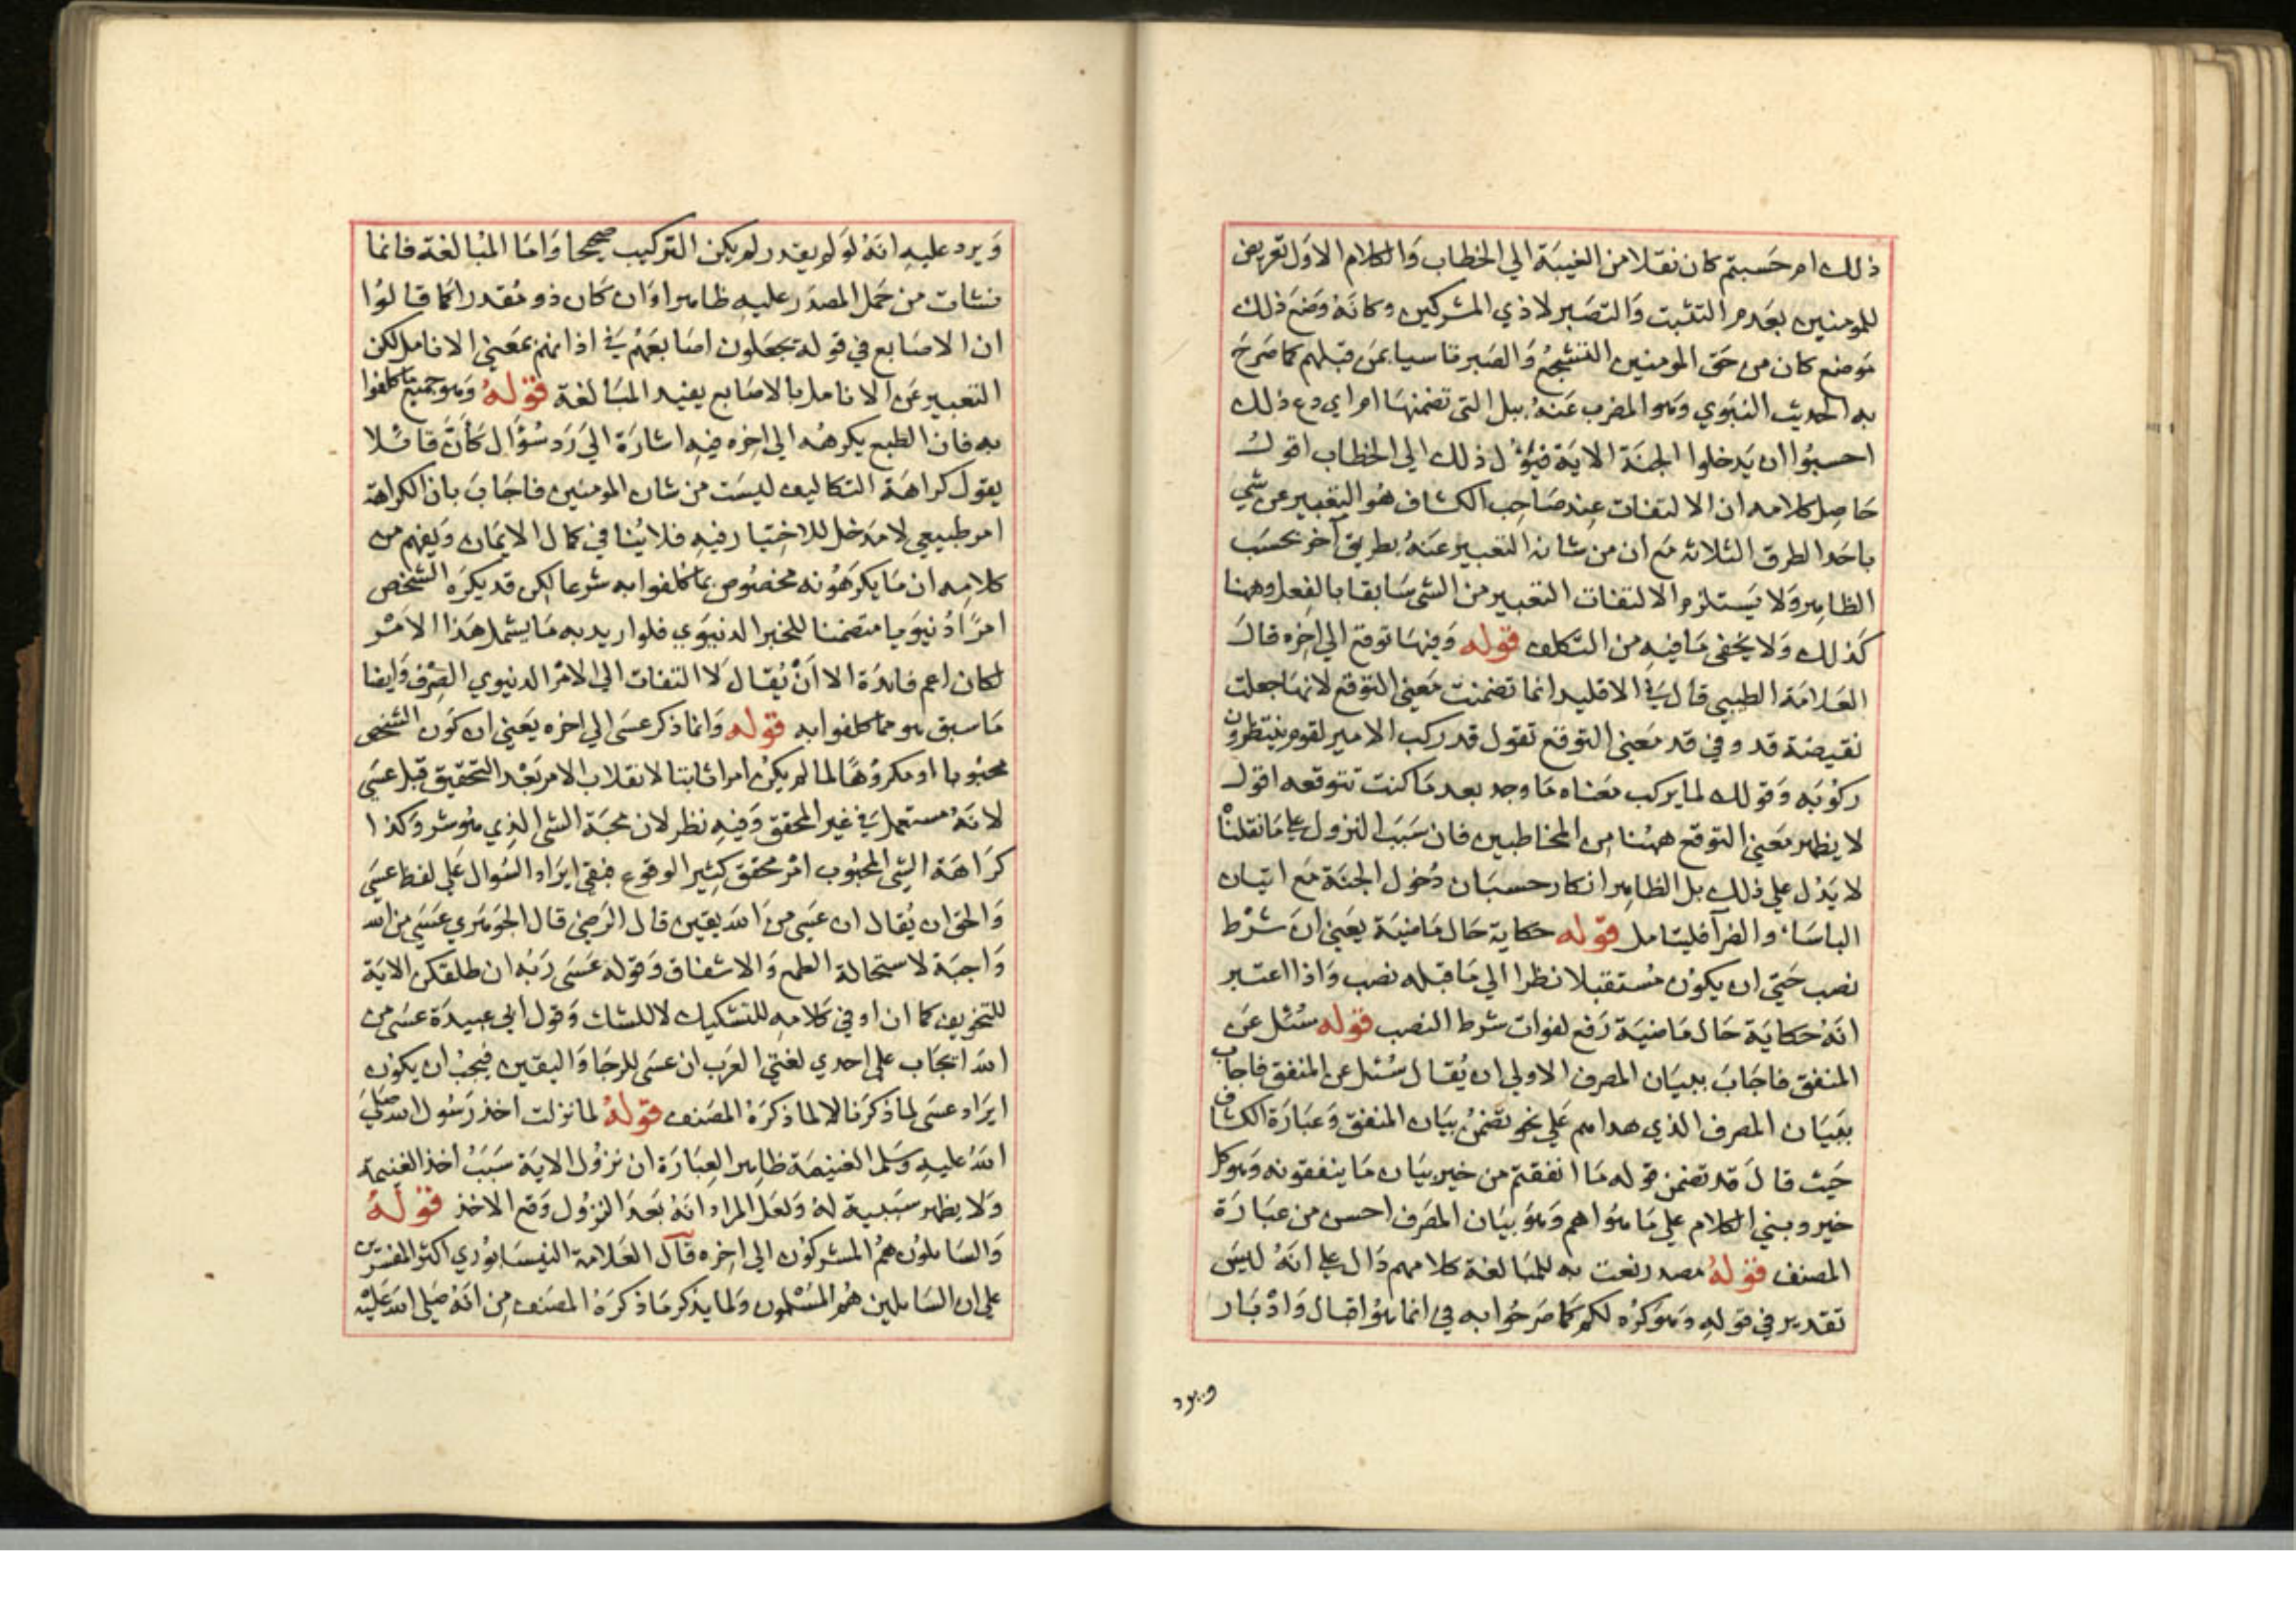 ذلك ام حسبتم كان نقلا من الغيبة الي الخطاب وَالكلام الاوَل تعريض
للمومنين بعَدم التثبت وَالتصَبر لاذي المشركين وكانَه وضَع ذلك
مَوضع كان من حَق المومنين التشجُع وَالصَبر تاسيا بمَن قبلهم كما صَرحَ
به الحديث النبَوي وَهو المضرب عَنهُ ببل التى تضمنهَا ام اي دع ذلك
احسبُوا ان يَدخلوا الجنَة الاية فيؤل ذلك الى الخطاب اقول
حَاصِل كلامه ان الالتفات عِند صَاحِب الكشاف هُو التعْبير عن شي
باحَد الطرق الثلاثه مَع ان من شانه التعبير عَنهُ بطريق آخر بحسَب
الظاهر وَلا يَستلزم الالتفات التعبير من الشى سَابقا بالفِعل وههنا
كَذلك وَلا يَخفى مَا فيهِ من التكلف قوله وَفيهَا توقع الي اخِره قالَ
العَلامَة الطيبي قال فِي الاقليد انما تضمنت مَعني التوقع لانهَا جعلت
نقيضة قد وفي قد مَعني التوقع تقول قد ركب الامير لقوم ينتظرون
ركوبَه وَقولك لما يركب مَعنَاه مَا وجد بعد مَا كنت تتوقعه اقول
لا يظهر مَعني التوقع ههُنا من المخاطبين فان سَبَب النزول على مَا نقلناْ
لا يَدُل علي ذلك بل الظاهِر انكار حسبَان دُخول الجنَة مَع اتيان
الباسَاء والضرآ فليتامل قوله حكاية حَال مَاضيَة يَعني ان شرْط
نصب حَتي ان يكوُن مُستقبلا نظرا الي مَا قبله نصب وَاذا اعتبر
انَهُ حكايَة حَال مَاضيَة رَفع لفوات شرط النصب قوله سُئل عَن
المنفق فاجَابَ ببيَان المصرف الاولي ان يُقال سُئل عن المنفق فاجاب
ببَيَان المصرف الذي هو اهم عَلي نحو تضَمنُ بيَان المنفق وَعبَارَة الكشاف
حَيث قالَ قد تضمن قوله مَا انفقتم من خير بيَان مَا ينفقونه وَهو كل
خير وبني الكلام علي مَا هُوَ اهم وَهوَ بيَان المصَرف احسن من عبَارَة
المصنف قولهُ مصدر نعت به للمبَالغة كلامهم دَال على انَهُ ليسَ
تقدير في قولهِ وَهوَ كرُه لكم كَما صَرحُوا به في انما هوُ اقبال وَادْبَار
ويرد
وَيرد عليهِ انَهُ لَو لم يقدر لم يكن التركيب صَحيحا وَامَا المبُالغة فانما
نشات من حَمل المصدَر عليهِ ظاهرا وَان كَان ذو مُقدرا كَما قالوُا
ان الاصَابع في قوله يجعَلون اصَابعَهُم فِي اذانهم بمَعني الانامل لكن
التعبير عَن الانامل بالاصَابع يفيد المبَالغة قولهُ وَهو جميع ما كلفوا
به فان الطبع يكرهُه الي اخِره فيهِ اشارَة الَي رَد سُؤال كَأنَّ قائلا
يقول كراهَة التكاليف ليسَت من شان المومنين فاجَابَ بان الكراهة
امر طبيعي لا مَدخل للاختيار فيهِ فلا يُنافي كمال الايمَان وَيفهم من
كلامِه ان مَا يكرَهُونه مخصُوص بما كُلفوا به شرعا لكن قد يكرَه الشخص
امرًا دُنيَويا متضمنا للخير الدنيَوي فلو اريد به مَا يشمل هَذا الامَر
لكان اعم فائدَة الا اَنْ يُقال لَا التفات الي الامْر الدنيوي الصِرْف وَايضا
مَا سبق هو مما كلفوا به قوله وَانما ذكر عسَى الي اخره يَعني ان كَون الشخص
محبُوبا او مكروُهًا لما لم يكن امرا ثابتا لانقلاب الامر بَعْد التحقيق قبل عسَي
لانَهُ مستعمل فِي غير المحقق وَفيهِ نظر لان محبَة الشى الذِي هُو شر وَكذا
كرَاهَة الشِى المحبُوب امْر محقق كثير الوقوع فبقي ايرَاد السُوال عَلي لفظ عسَي
وَالحَق ان يُقال ان عسَي مِن اللهَ يقين قال الرَضِي قال الجَوهَري عَسَي من الله
وَاجبَة لاستحالة الطمع وَالاشفاق وَقوله عَسَى رَبُه ان طلقكن الايَة
للتخويف كما ان او في كَلامِه للتشكيك لا للشك وَقول ابي عبيدَة عسَى من
الله ايجَاب على احدي لغتي العَرَب ان عسَى للرجَا وَاليقين فيَجبْ ان يكوُن
ايرَاد عسَى لماَ ذكرَنا لا لما ذكرَهُ المصَنف قولهُ لما نزلت اخذ رَسُول الله صَلي
اللهُ عليهِ وسَلم الغنيمَة ظاهِر العِبَارَة ان نزُول الايَة سَبَبُ اخذ الغنيمة
وَلا يظهر سَببية لهُ وَلعَل المراد انَهُ بَعَد النزُول وَقع الاخذ قولهُ
وَالسَايلوُن همُ المشركوُن الي اخِره قال العَلامة النيسَابوُري اكثر المفسّرين
على ان السَايلين هُم المسْلموُن وَلما يذكر مَا ذكرَهُ المصَنف مِن انَهُ صَلى اللهَ عَليْهِ